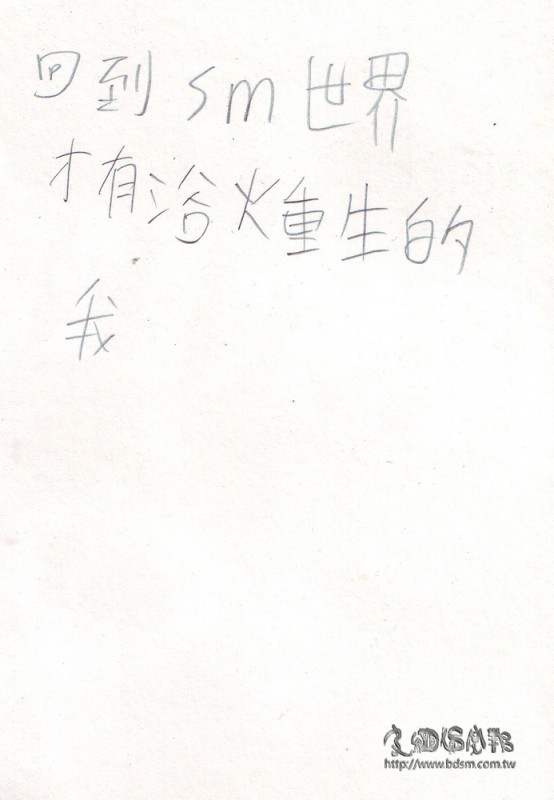 回到sm世界
才有浴火重生的
我
http://www.bdsm.com.tw